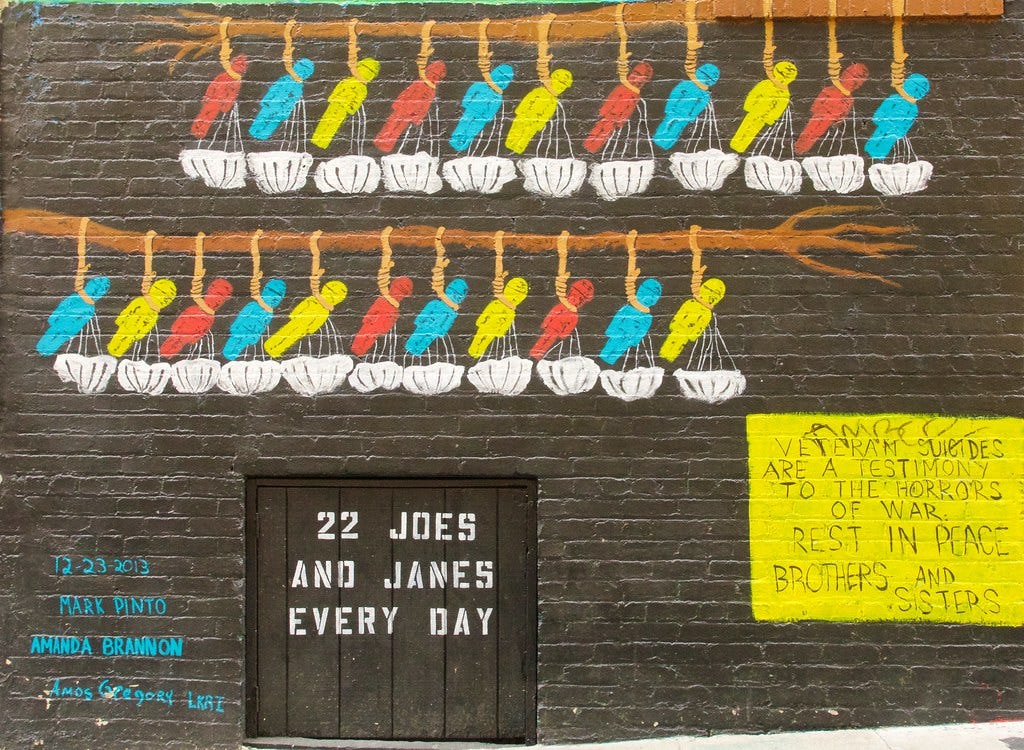 22 JOES
AND JANES
EVERY DAY
VETERAN SUICIDES
ARE A TESTIMONY
TO THE HORRORS
OF WAR.
REST IN PEACE
BROTHERS AND
SISTERS
12-23-2013
MARK PINTO
AMANDA BRANNON
Amos Gregory